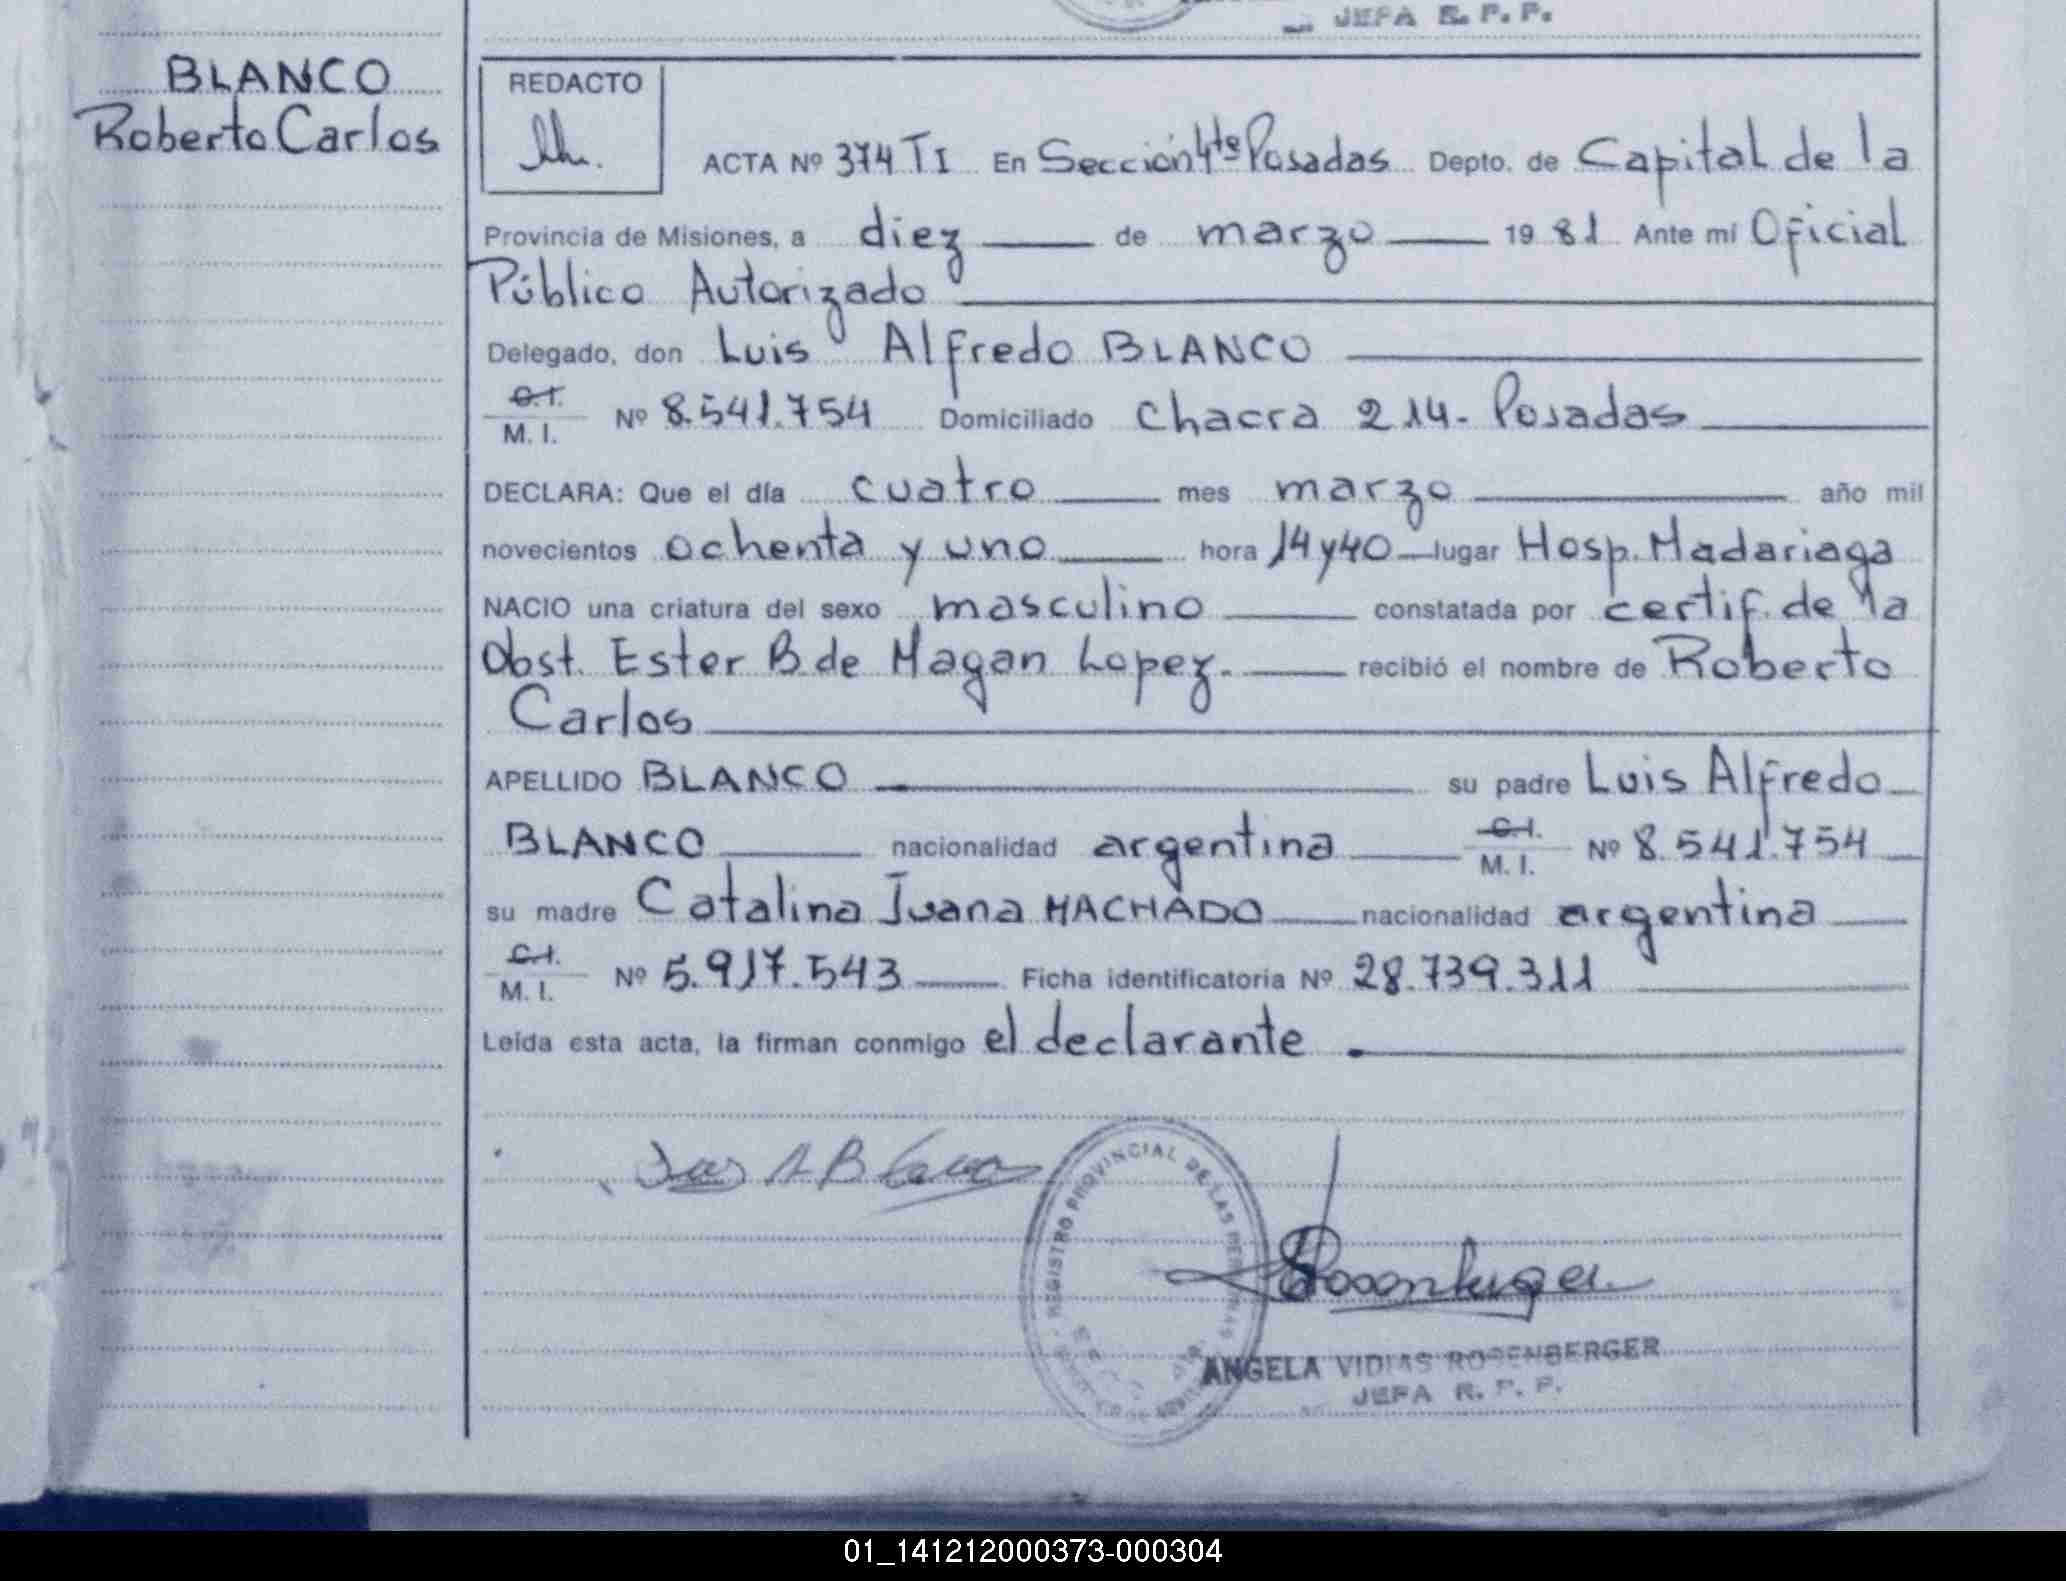 JEFA R. P. P.
BLANCO
Roberto Carlos
REDACTO
ACTA Nº 374 TI En Sección 4ta Posadas Depto. de Capital de la
Provincia de Misiones, a diez de marzo 1981 Ante mí Oficial
Público Autorizado
Delegado, don Luis Alfredo BLANCO
C.I.
M. I. Nº 8.541.754 Domiciliado Chacra 214- Posadas
DECLARA: Que el día cuatro mes marzo año mil
novecientos ochenta y uno hora 14 y 40 lugar Hosp. Madariaga
NACIO una criatura del sexo masculino constatada por certif. de la
Obst. Ester B de Magan Lopez. recibió el nombre de Roberto
Carlos
APELLIDO BLANCO su padre Luis Alfredo
BLANCO nacionalidad argentina C.I. M. I. Nº 8.541.754
su madre Catalina Juana MACHADO nacionalidad argentina
C.I.
M. I. Nº 5.917.543 Ficha identificatoria Nº 28.739.311
Leída esta acta, la firman conmigo el declarante.
Luis A Blanco
REGISTRO PROVINCIAL DE LAS
Rosenberger
ANGELA VIDIAS ROSENBERGER
JEFA R. P. P.
01_141212000373-000304